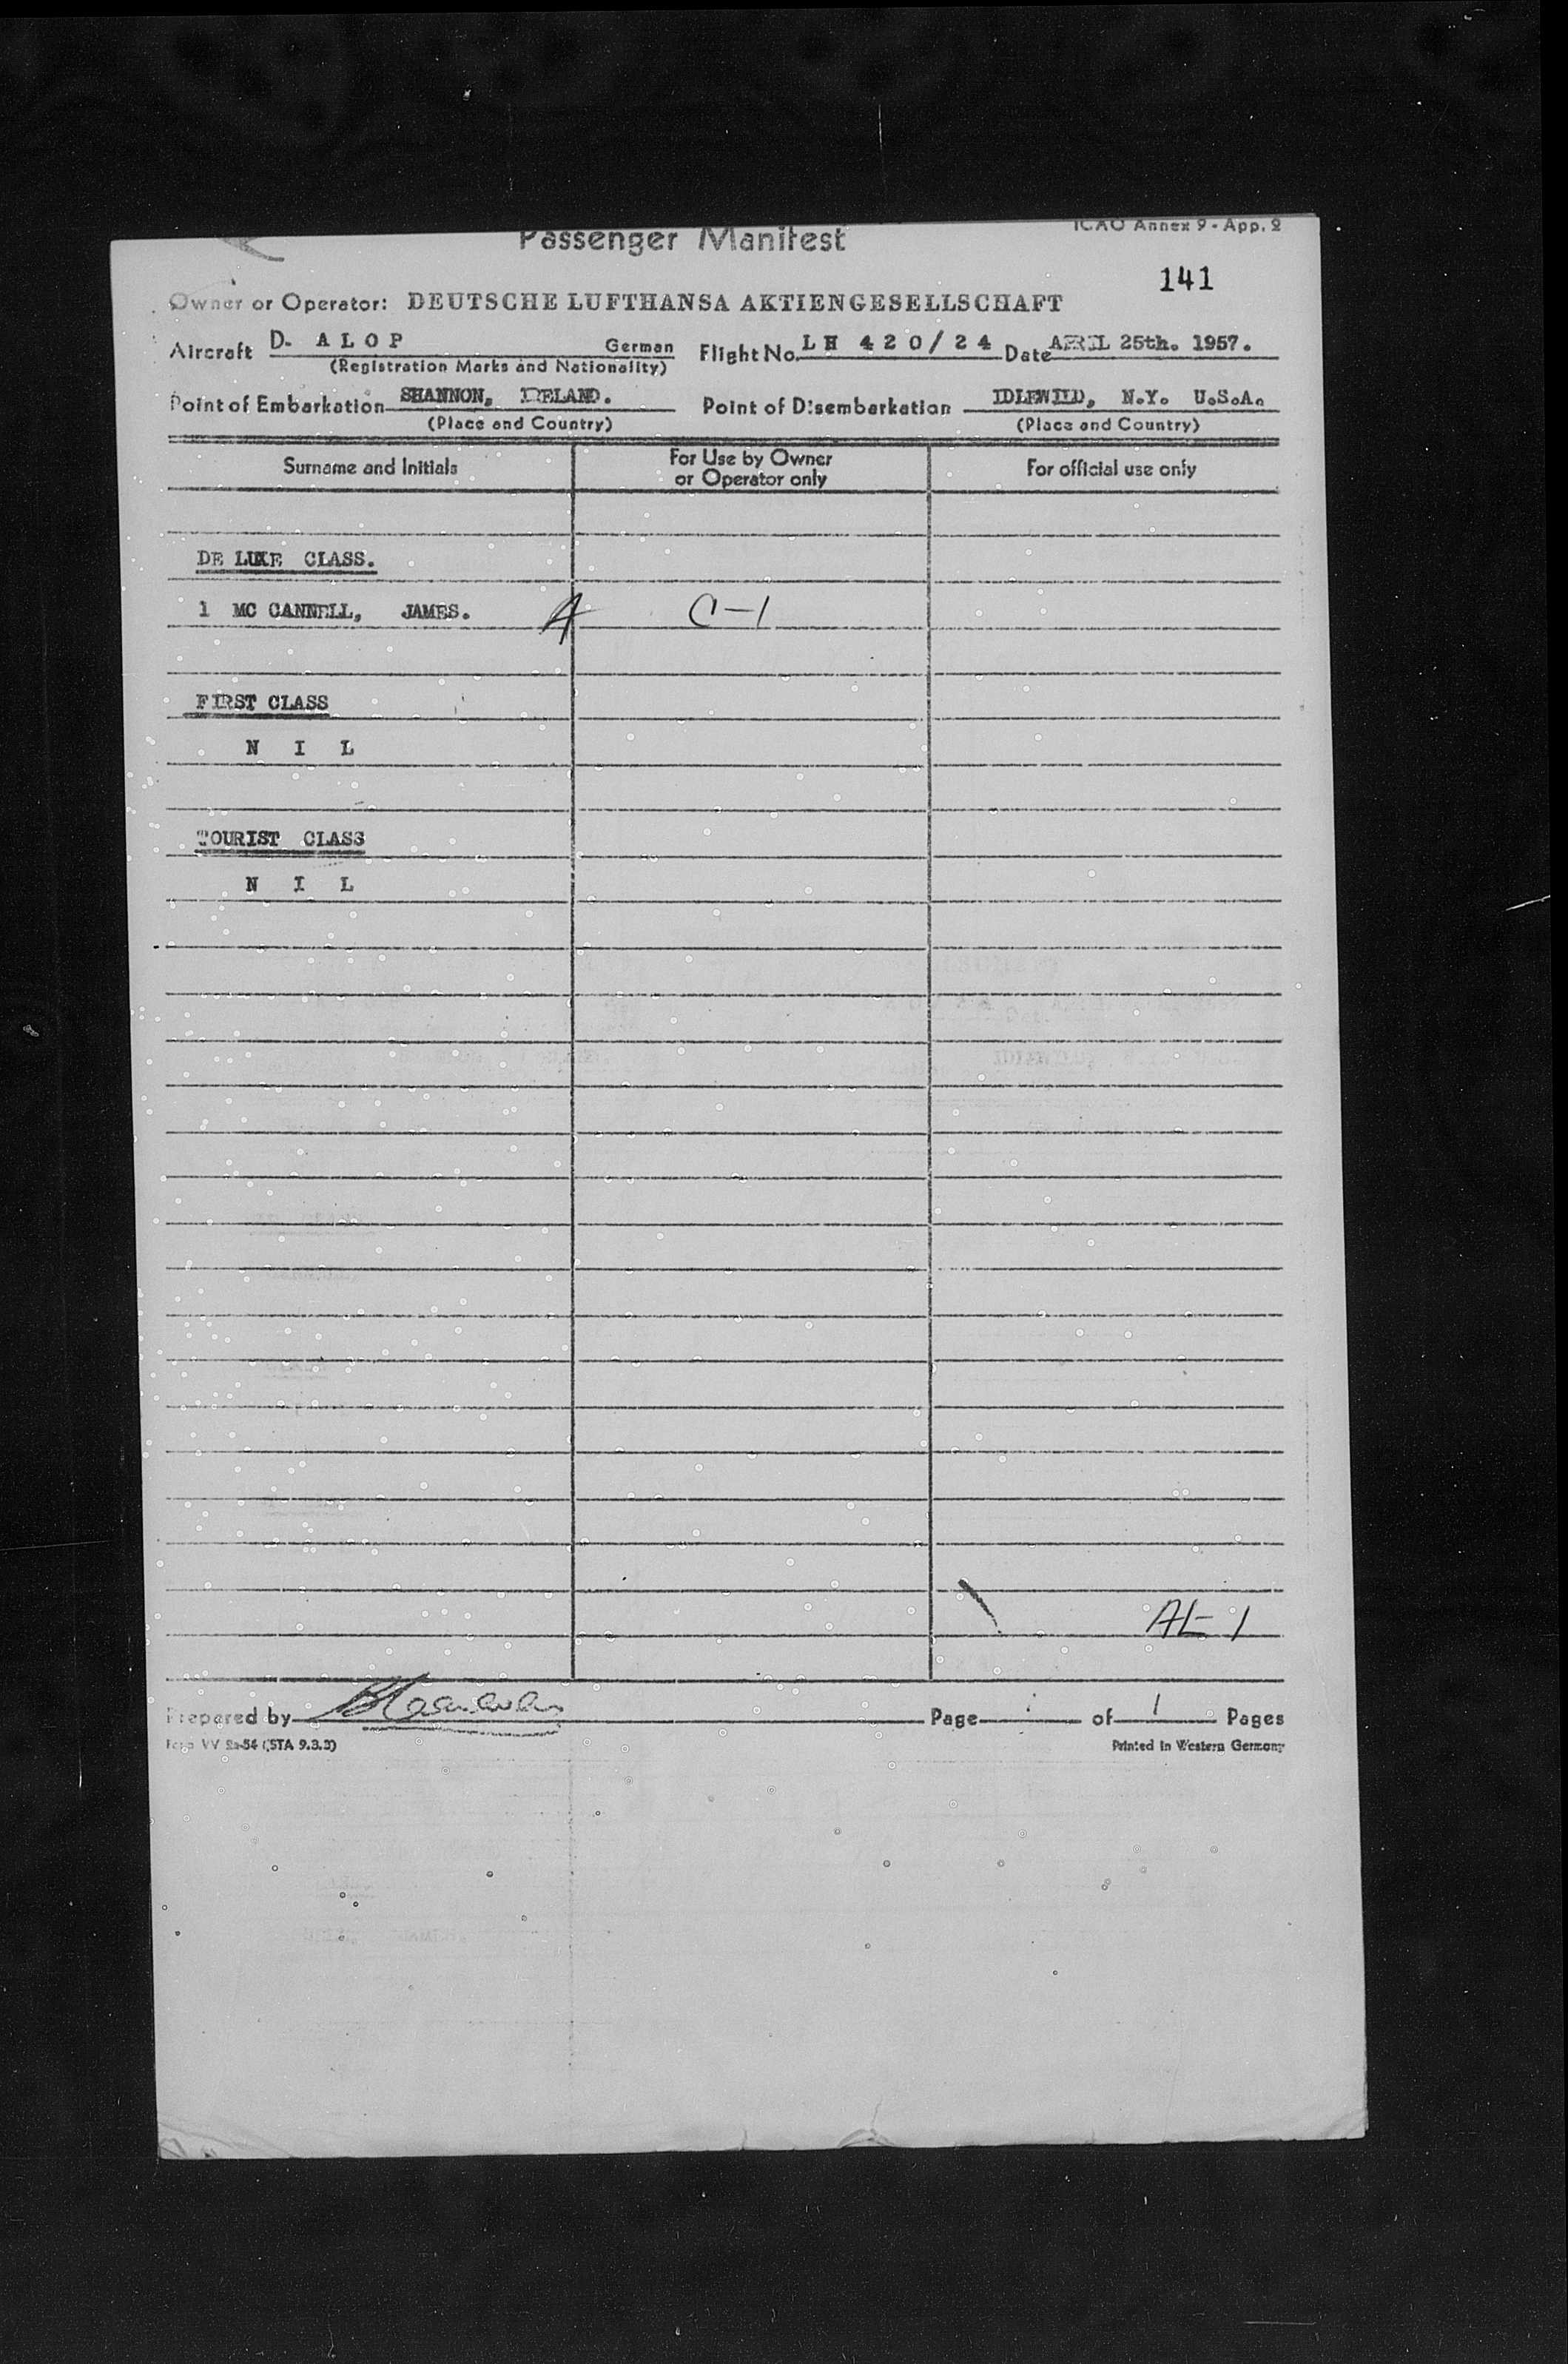 Passenger Manifest
ICAO Annex 9 - App. 2
141
Owner or Operator: DEUTSCHE LUFTHANSA AKTIENGESELLSCHAFT
Aircraft D- A L O P German Flight No. L H 4 2 0 / 2 4 Date APRIL 25th. 1957.
(Registration Marks and Nationality)
Point of Embarkation SHANNON, IRELAND. Point of Disembarkation IDLEWILD, N.Y. U.S.A.
(Place and Country) (Place and Country)
Surname and Initials For Use by Owner or Operator only For official use only
DE LUXE CLASS.
1 MC CANNELL, JAMES. A C-1
FIRST CLASS
N I L
TOURIST CLASS
N I L
AL- 1
Prepared by Page of 1 Pages
Form VV 2a-54 (STA 9.3.3) Printed in Western Germany